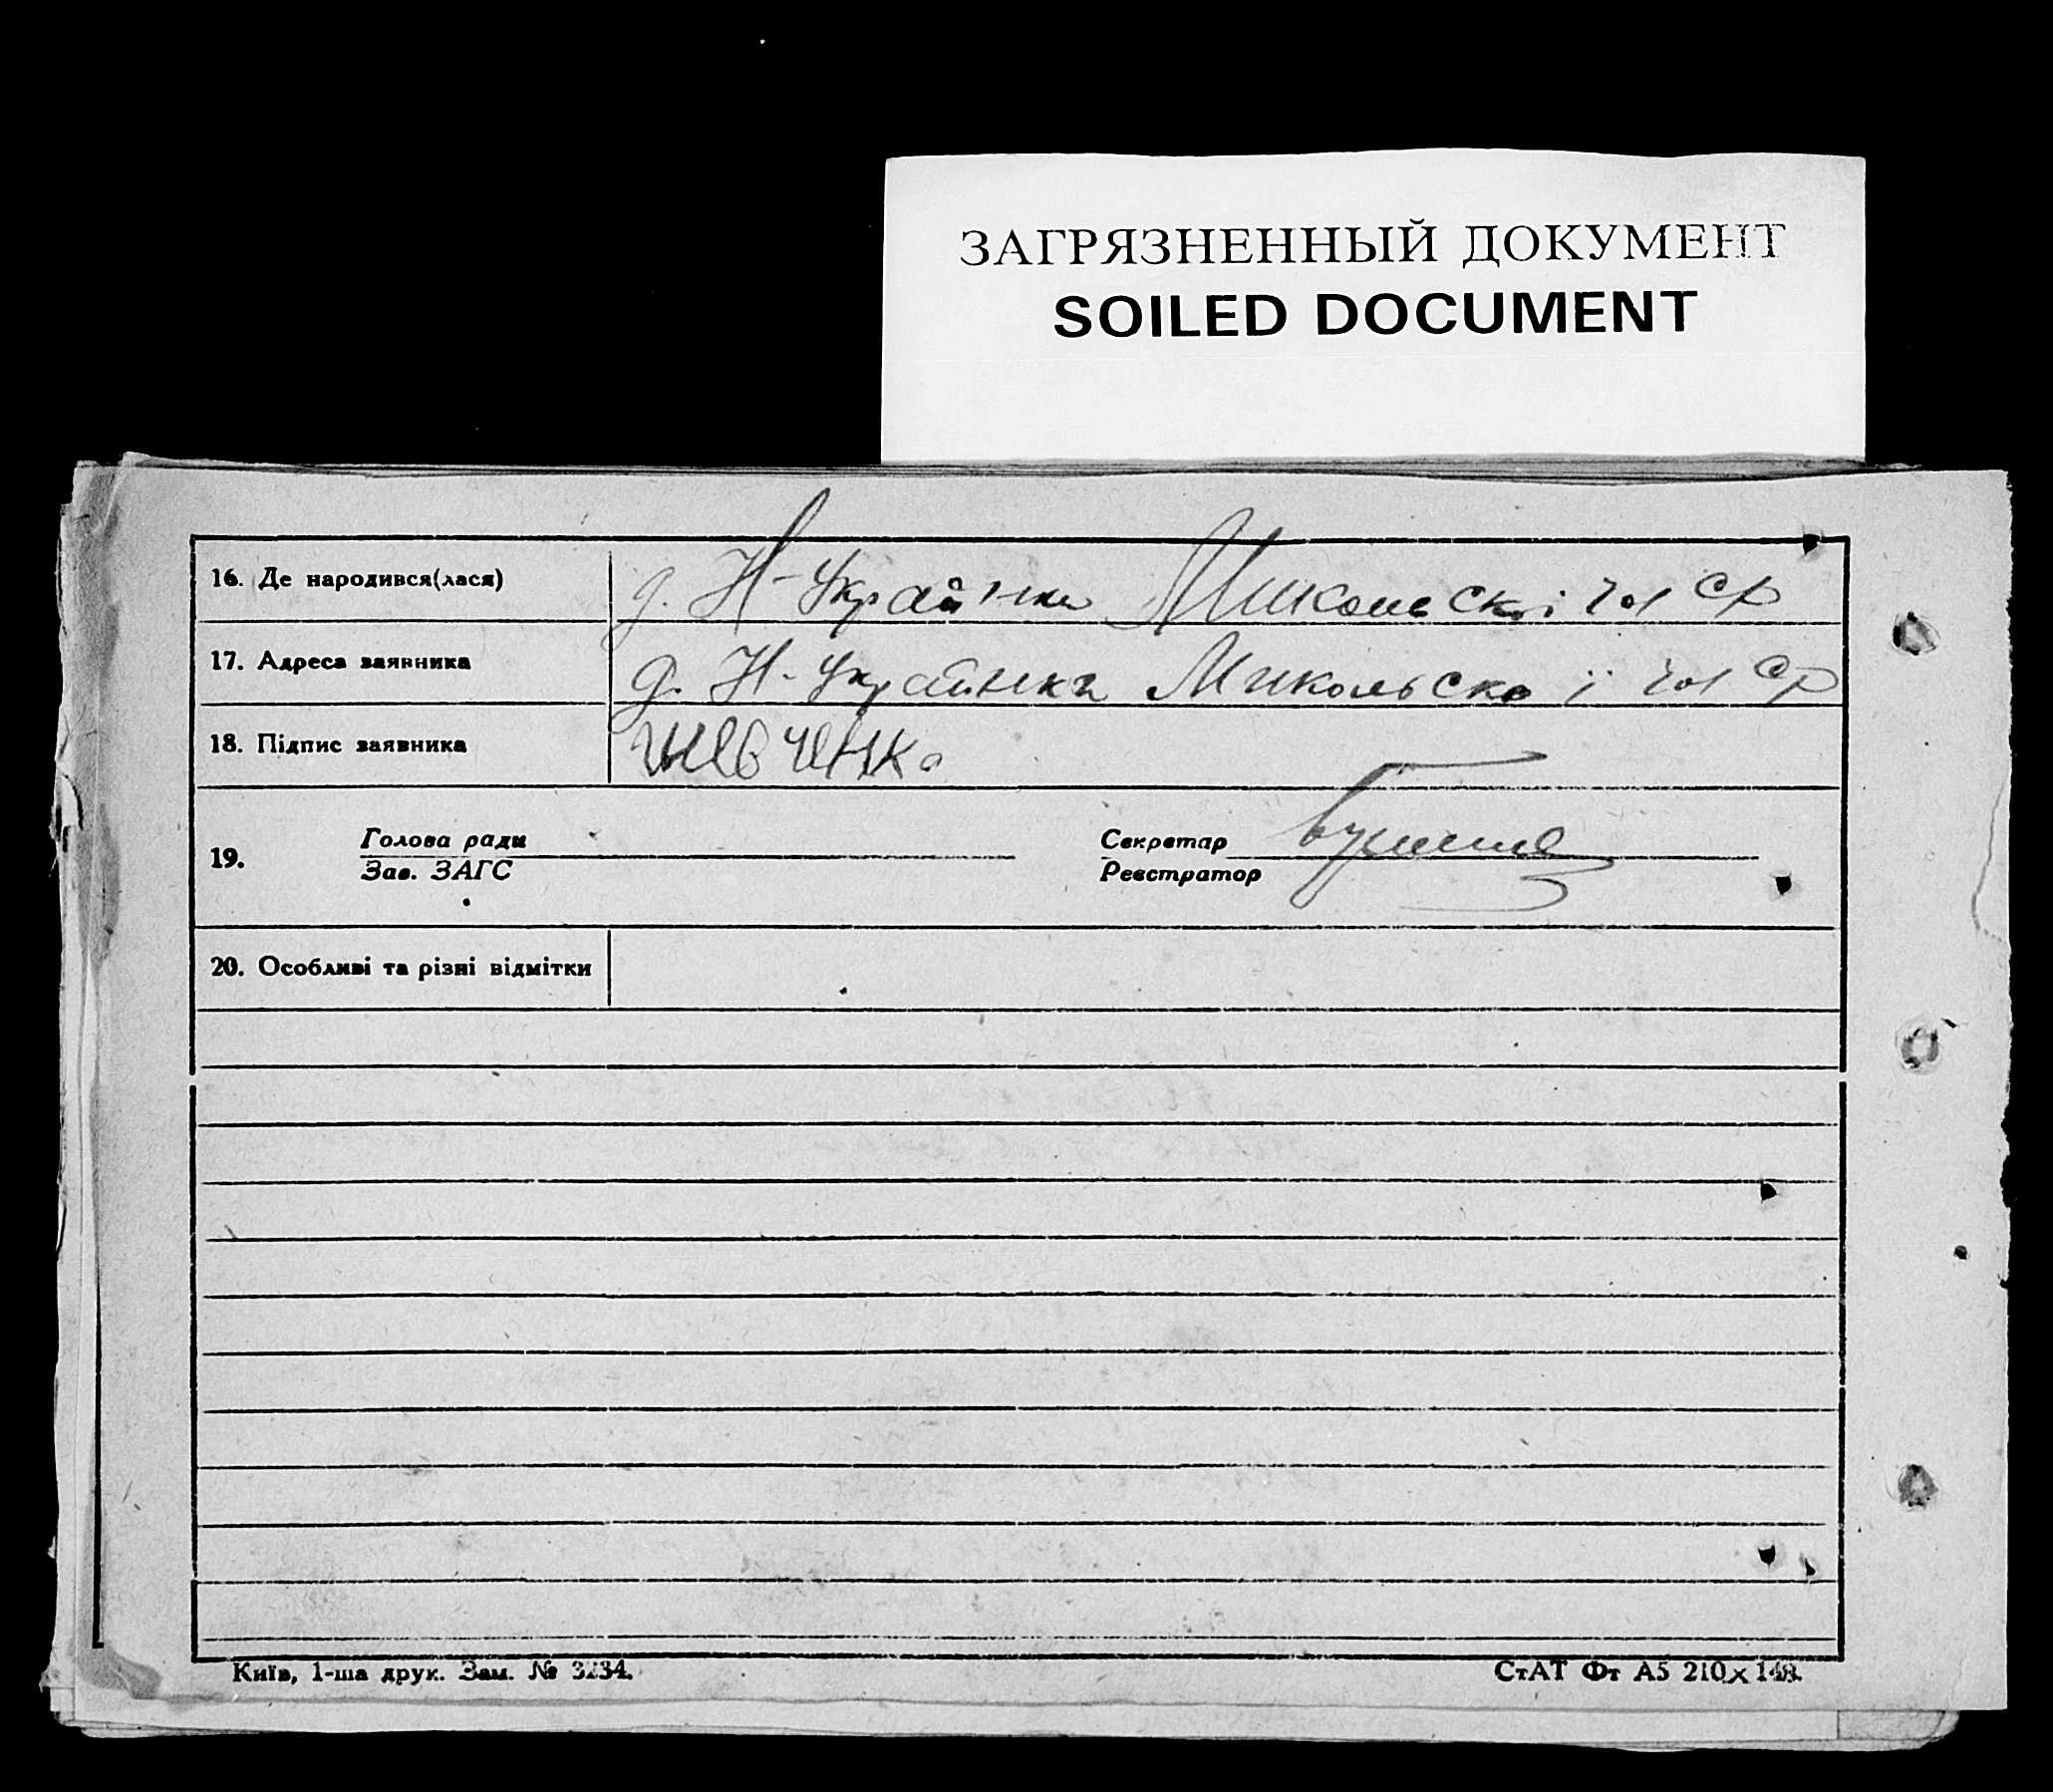 ЗАГРЯЗНЕННЫЙ ДОКУМЕНТ
SOILED DOCUMENT
16. Де народився(лася) д. Н-Українка
17. Адреса заявника д. Н-Українка Микольської
18. Підпис заявника Шевченко
Голова ради Секретар
19.
Зав. ЗАГС Реєстратор
20. Особливі та різні відмітки
Київ, 1-ша друк. Зам. № 3234. СтАТ Фт А5 210×148.